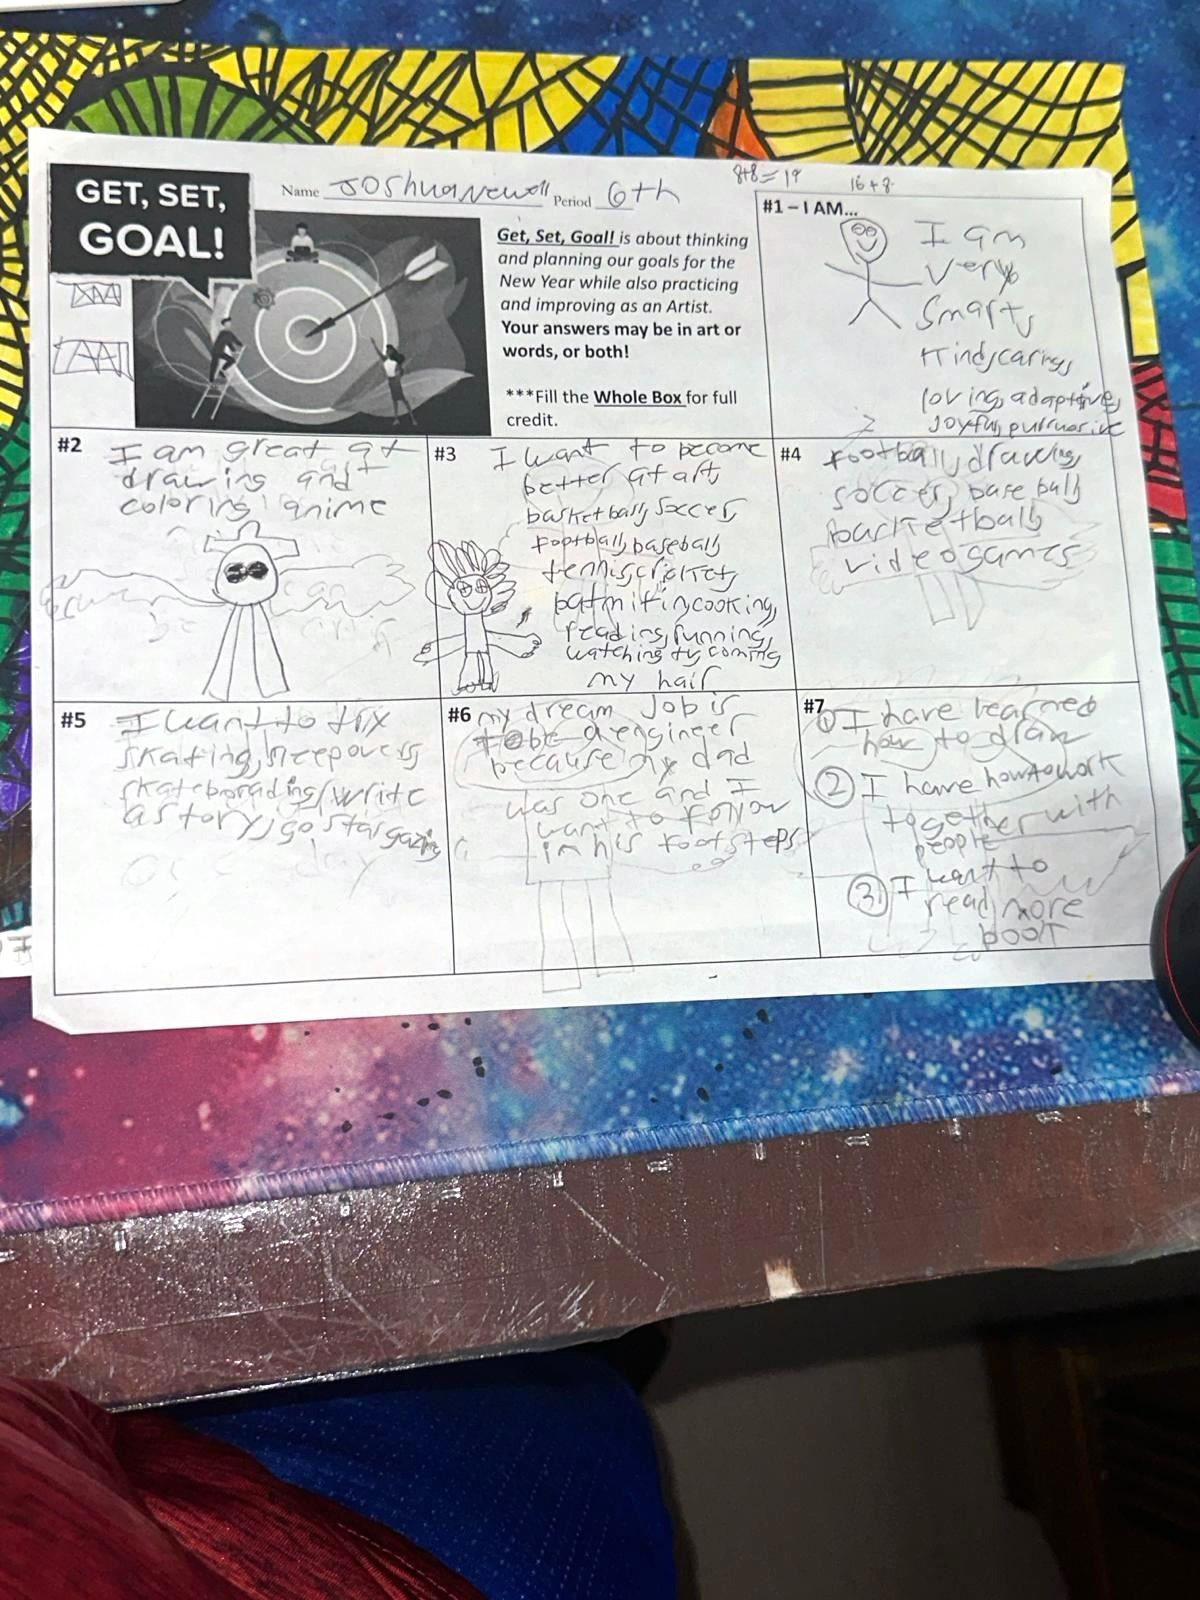 GET, SET,
GOAL!
Name Joshua Newell Period 6th
8+8=19
16+8
Get, Set, Goal! is about thinking
and planning our goals for the
New Year while also practicing
and improving as an Artist.
Your answers may be in art or
words, or both!
***Fill the Whole Box for full
credit.
#1 – I AM...
I am
very
Smart,
Kind, caring,
loving, adaptive,
Joyful,
#2 I am great at
drawing and
coloring anime
#3 I want to become
better at art,
basketball, soccer,
football, baseball,
tennis, cricket,
batmitin, cooking,
reading, running,
watching tv, coming
my hair
#4 football, drawing,
soccer, base ball,
basketball,
video games
#5 I want to try
skating, sleepovers
skateborading, write
a story, go star gazing
#6 my dream Job is
to be a enginger
because my dad
was one and I
want to follow
in his foot steps
#7 ① I have learned
how to draw
② I have how to work
together with
people
③ I want to
read more
book